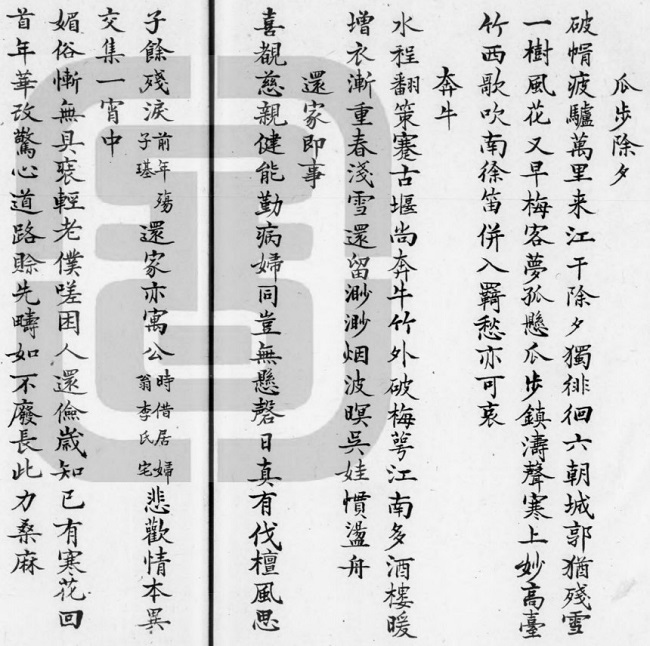 瓜步除夕
破帽疲驢萬里来江干除夕獨徘徊六朝城郭猶殘雪
一樹風花又早梅客夢孤懸瓜步鎮濤聲寒上妙高臺
竹西歌吹南徐笛併入羇愁亦可哀
奔牛
水程翻策蹇古堰尚奔牛竹外破梅萼江南多酒樓暖
增衣漸重春淺雪還留渺渺烟波暝吳娃慣盪舟
還家即事
喜覩慈親健能勤病婦同豈無懸磬日真有伐檀風思
子餘殘淚前年殤子璂還家亦寓公時借居婦翁李氏宅悲歡情本異
交集一宵中
媚俗慚無具裘輕老僕嗟困人還儉歲知已有寒花回
首年華改驚心道路賒先疇如不廢長此力桑麻